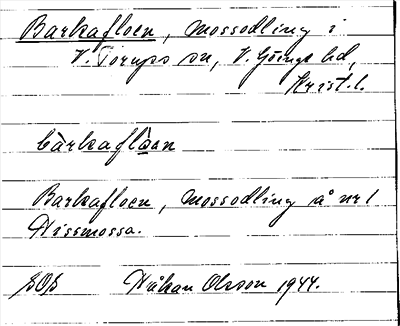 Barkafloen, mossodling i
V. Torups sn, V. Göinge hd,
Krist. l.
bàrkaflòen
Barkafloen, mossodling å nr 1
Nissmossa.
Håkan Olsson 1944.